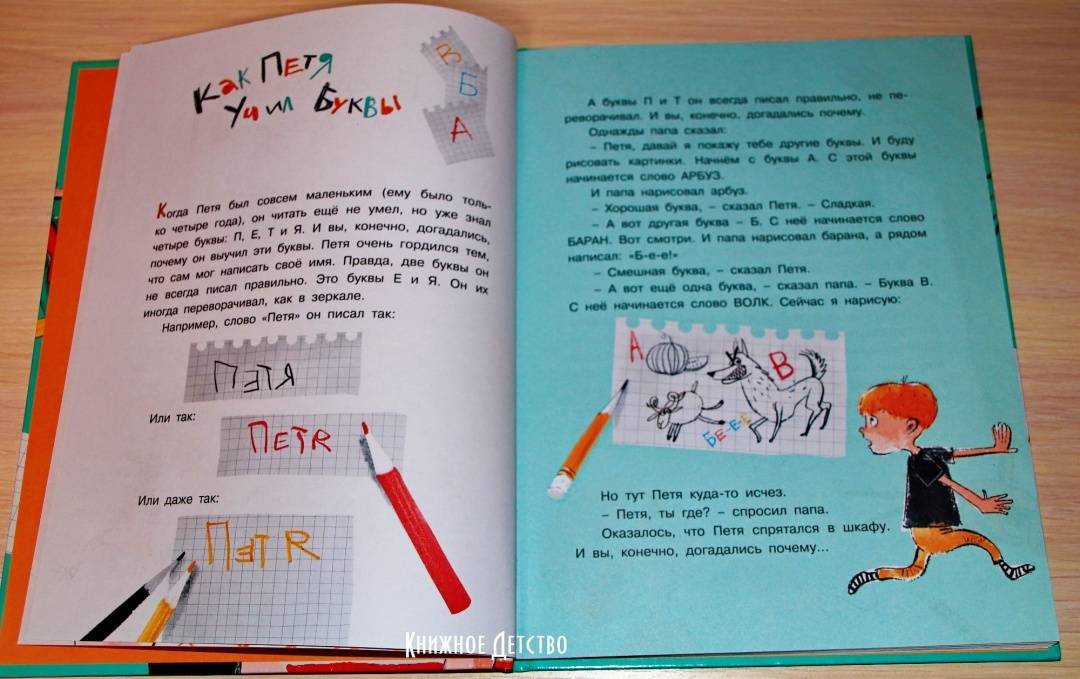 Как Петя
Учил Буквы
В
Б
А
Когда Петя был совсем маленьким (ему было толь-
ко четыре года), он читать ещё не умел, но уже знал
четыре буквы: П, Е, Т и Я. И вы, конечно, догадались,
почему он выучил эти буквы. Петя очень гордился тем,
что сам мог написать своё имя. Правда, две буквы он
не всегда писал правильно. Это буквы Е и Я. Он их
иногда переворачивал, как в зеркале.
Например, слово «Петя» он писал так:
ПƎТЯ
Или так:
ПЕТR
Или даже так:
ПƎТR
А буквы П и Т он всегда писал правильно, не пе-
реворачивал. И вы, конечно, догадались почему.
Однажды папа сказал:
– Петя, давай я покажу тебе другие буквы. И буду
рисовать картинки. Начнём с буквы А. С этой буквы
начинается слово АРБУЗ.
И папа нарисовал арбуз.
– Хорошая буква, – сказал Петя. – Сладкая.
– А вот другая буква – Б. С неё начинается слово
БАРАН. Вот смотри. И папа нарисовал барана, а рядом
написал: «Б-е-е!»
– Смешная буква, – сказал Петя.
– А вот ещё одна буква, – сказал папа. – Буква В.
С неё начинается слово ВОЛК. Сейчас я нарисую:
А
В
БЕ-Е-Е
Но тут Петя куда-то исчез.
– Петя, ты где? – спросил папа.
Оказалось, что Петя спрятался в шкафу.
И вы, конечно, догадались почему...
Книжное Детство